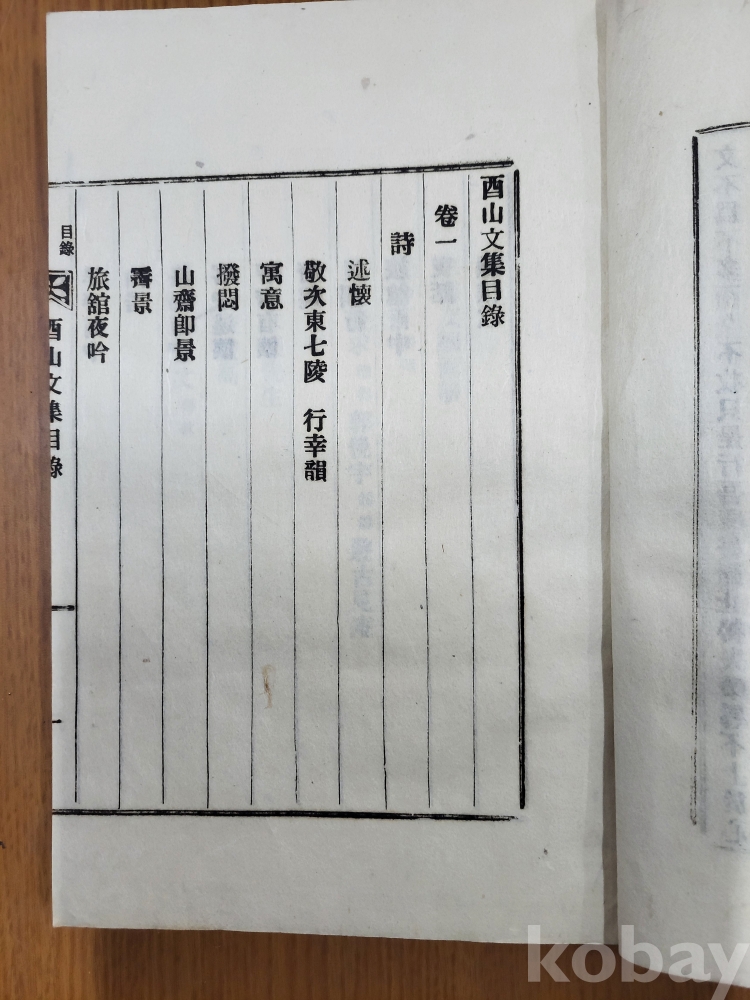 酉山文集目錄
卷一
詩
述懷
敬次東七陵　行幸韻
寓意
撥悶
山齋卽景
霽景
旅舘夜吟
目錄
酉山文集目錄
一
kobay